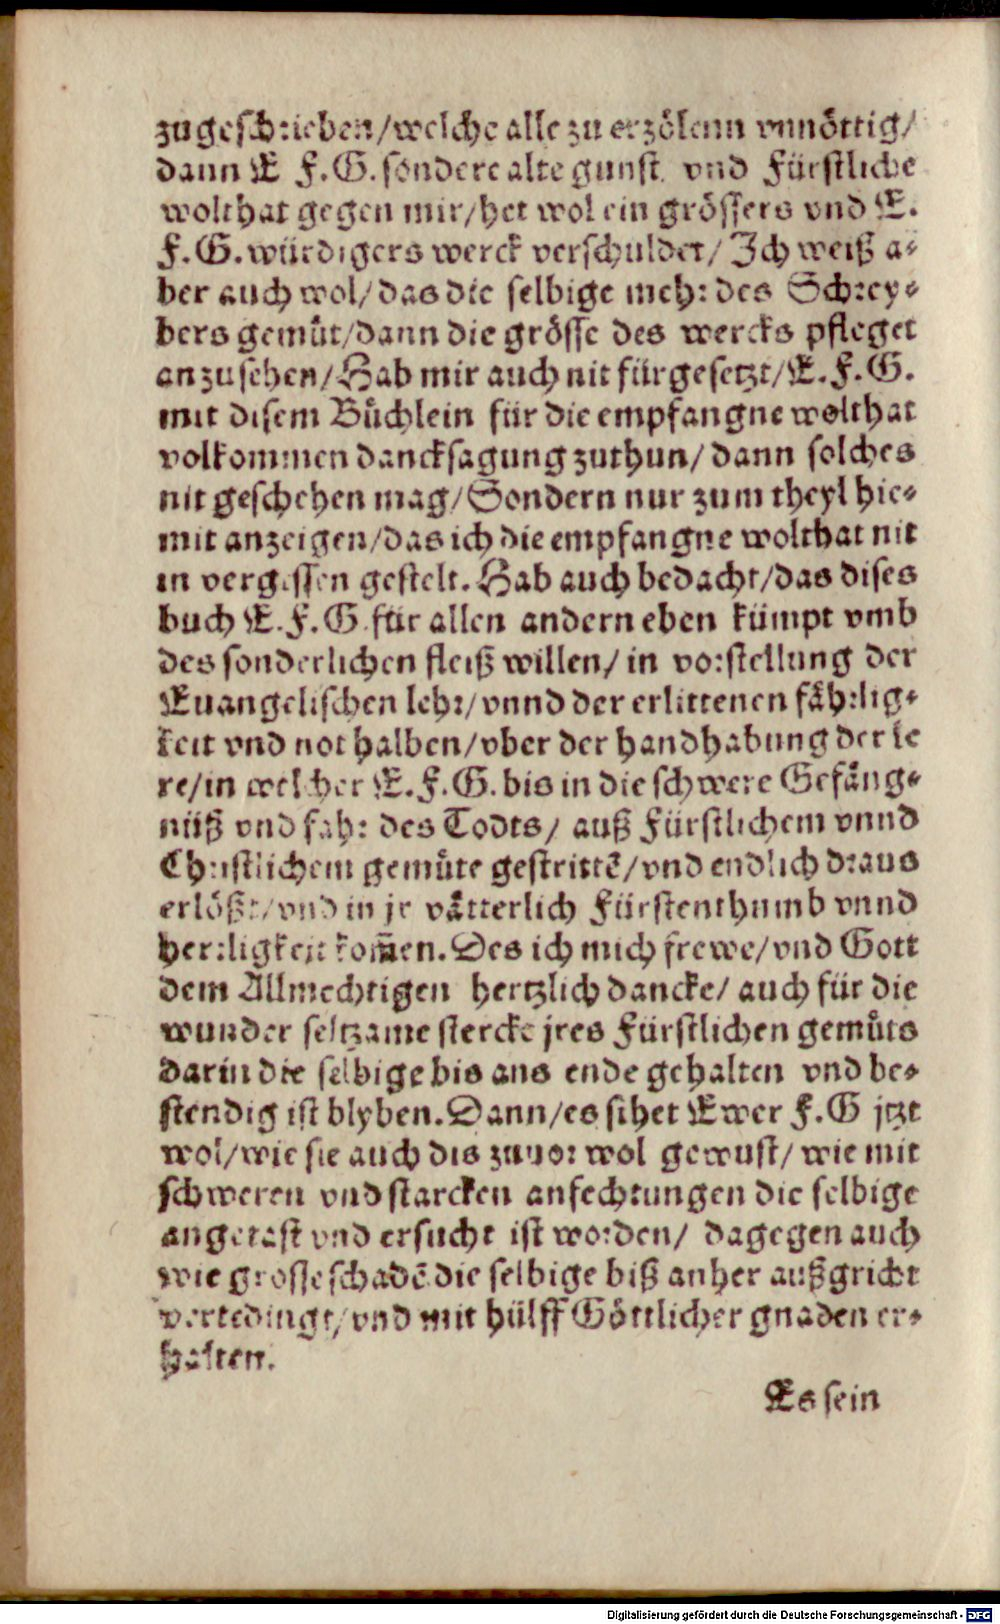 zugeschrieben/welche alle zu erzölenn vnnöttig/
dann E F.G. sondere alte gunst vnd Fürstliche
wolthat gegen mir/het wol ein grössers vnd E.
F.G. würdigers werck verschuldet/ Ich weiß a-
ber auch wol/ das die selbige mehr des Schrey-
bers gemüt/dann die grösse des wercks pfleget
anzusehen/Hab mir auch nit fürgesetzt/E.F.G.
mit disem Büchlein für die empfangne wolthat
volkommen dancksagung zuthun/ dann solches
nit geschehen mag/Sondern nur zum theyl hie-
mit anzeigen/das ich die empfangne wolthat nit
in vergessen gestelt. Hab auch bedacht/das dises
buch E.F.G für allen andern eben kümpt vmb
des sonderlichen fleiß willen/ in vorstellung der
Euangelischen lehr/vnnd der erlittenen fährlig-
keit vnd not halben/vber der handhabung der le
re/in welcher E.F.G. bis in die schwere Gefäng-
nüß vnd fahr des Todts/ auß Fürstlichem vnnd
Christlichem gemüte gestrittē/vnd endlich draus
erlößt/vnd in jr vätterlich Fürstenthumb vnnd
herrligkeit kom̃en. Des ich mich frewe/vnd Gott
dem Allmechtigen hertzlich dancke/ auch für die
wunder seltzame stercke jres Fürstlichen gemüts
darin die selbige bis ans ende gehalten vnd be-
stendig ist blyben. Dann/es sihet Ewer F.G jtzt
wol/wie sie auch dis zuuor wol gewust/ wie mit
schweren vnd starcken anfechtungen die selbige
angetast vnd ersucht ist worden/ dagegen auch
wie grosse schadē die selbige biß anher außgricht
vertedingt/vnd mit hülff Göttlicher gnaden er-
halten.
Es sein
Digitalisierung gefördert durch die Deutsche Forschungsgemeinschaft - DFG